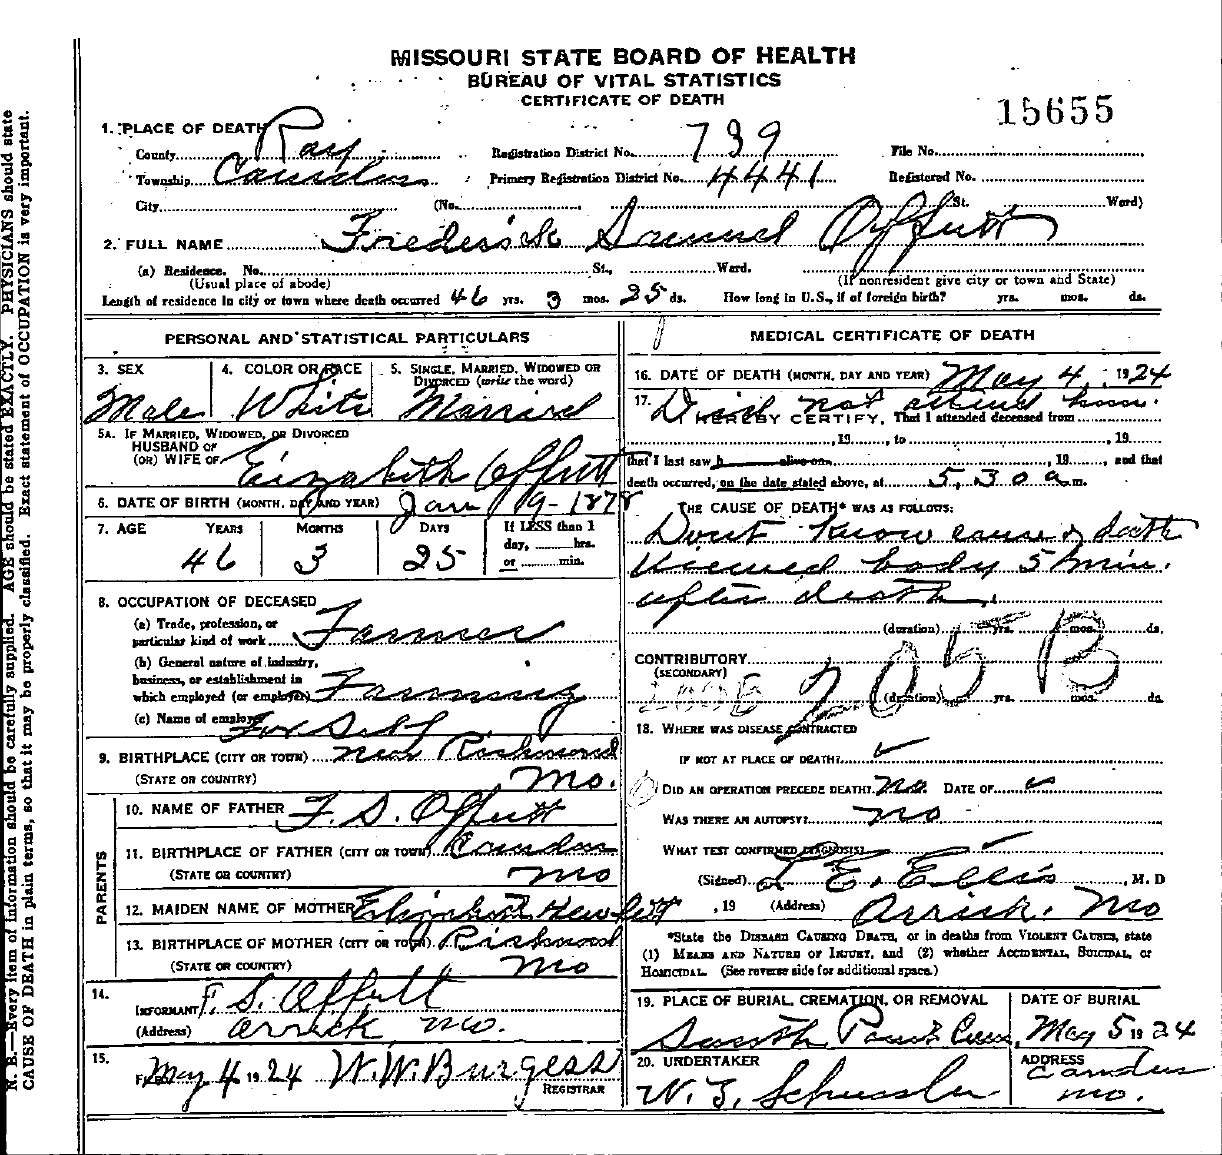 MISSOURI STATE BOARD OF HEALTH
BUREAU OF VITAL STATISTICS
CERTIFICATE OF DEATH
15655
1. PLACE OF DEATH
County Ray Registration District No. 739 File No.
Township Camden Primary Registration District No. 4441 Registered No.
City (No. St. Ward)
2. FULL NAME Frederick Offutt
(a) Residence. No. St., Ward.
(Usual place of abode) (If nonresident give city or town and State)
Length of residence in city or town where death occurred 46 yrs. 3 mos. 25 ds. How long in U.S., if of foreign birth? yrs. mos. ds.
PERSONAL AND STATISTICAL PARTICULARS
3. SEX 4. COLOR OR RACE 5. SINGLE, MARRIED, WIDOWED OR DIVORCED (write the word)
Male White Married
5A. IF MARRIED, WIDOWED, OR DIVORCED
HUSBAND OF
(OR) WIFE OF Elizabeth Offutt
6. DATE OF BIRTH (MONTH, DAY AND YEAR) Jan 9-1878
7. AGE YEARS MONTHS DAYS If LESS than 1
day, hrs.
or min.
46 3 25
8. OCCUPATION OF DECEASED
(a) Trade, profession, or
particular kind of work Farmer
(b) General nature of industry,
business, or establishment in
which employed (or employer) Farming
(c) Name of employer For Self
9. BIRTHPLACE (CITY OR TOWN) near Richmond
(STATE OR COUNTRY) Mo.
PARENTS
10. NAME OF FATHER F. S. Offutt
11. BIRTHPLACE OF FATHER (CITY OR TOWN) Camden
(STATE OR COUNTRY) Mo
12. MAIDEN NAME OF MOTHER
13. BIRTHPLACE OF MOTHER (CITY OR TOWN) Richmond
(STATE OR COUNTRY) Mo
14.
INFORMANT F. S. Offutt
(Address) Orrick Mo.
15.
FILED May 4 1924 W. W. Burgess
REGISTRAR
MEDICAL CERTIFICATE OF DEATH
16. DATE OF DEATH (MONTH, DAY AND YEAR) May 4, 1924
17. Did not attend him.
I HEREBY CERTIFY, That I attended deceased from
, 19 , to , 19
that I last saw h alive on , 19 , and that
death occurred, on the date stated above, at 5,30 a m.
THE CAUSE OF DEATH* WAS AS FOLLOWS:
Dont know cause of death
Viewed body 5 min.
after death.
(duration) yrs. mos. ds.
205 B
CONTRIBUTORY
(SECONDARY)
(duration) yrs. mos. ds.
18. WHERE WAS DISEASE CONTRACTED
IF NOT AT PLACE OF DEATH?
DID AN OPERATION PRECEDE DEATH? no. DATE OF
WAS THERE AN AUTOPSY? no
WHAT TEST CONFIRMED DIAGNOSIS?
(Signed) L E. Ellis, M. D
, 19 (Address) Orrick, Mo
*State the DISEASE CAUSING DEATH, or in deaths from VIOLENT CAUSES, state
(1) MEANS AND NATURE OF INJURY, and (2) whether ACCIDENTAL, SUICIDAL, or
HOMICIDAL. (See reverse side for additional space.)
19. PLACE OF BURIAL, CREMATION, OR REMOVAL DATE OF BURIAL
South Point Cem. May 5 1924
20. UNDERTAKER ADDRESS
Camden
Mo.
N. B.—Every item of information should be carefully supplied. AGE should be stated EXACTLY. PHYSICIANS should state
CAUSE OF DEATH in plain terms, so that it may be properly classified. Exact statement of OCCUPATION is very important.